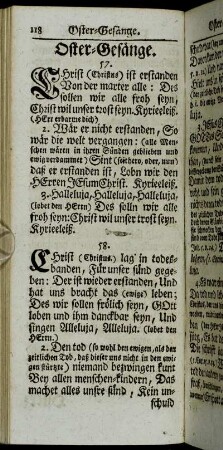 118 Oster-Gesänge.
Oster-Gesänge.
57.
Christ (Christus) ist erstanden
Von der marter alle: Des
sollen wir alle froh seyn,
Christ wil unser trost seyn. Kyrieeleiß.
(HErr erbarme dich)
2. Wär er nicht erstanden, So
wär die welt vergangen: (alle Men-
schen wären in ihren Sünden geblieben und
ewig verdammet) Sint (sinthero, oder, nun)
daß er erstanden ist, Lobn wir den
HErren JEsum Christ. Kyrieeleiß.
3. Halleluja, Halleluja, Halleluja,
(lobet den HErrn) Des solln wir alle
froh seyn: Christ wil unser trost seyn.
Kyrieeleiß.
58.
Christ (Christus) lag in todes-
banden, Für unser sünd gege-
ben: Der ist wieder erstanden, Und
hat uns bracht das (ewige) leben;
Des wir sollen frölich seyn, GOtt
loben und ihm danckbar seyn, Und
singen Alleluja, Alleluja. (lobet den
HErrn.)
2. Den tod (so wohl den ewigen, als den
zeitlichen Tod, daß dieser uns nicht in den ewi-
gen stürtzte) niemand bezwingen kunt
Bey allen menschen-kindern, Das
machet alles unsre sünd, Kein un-
schuld